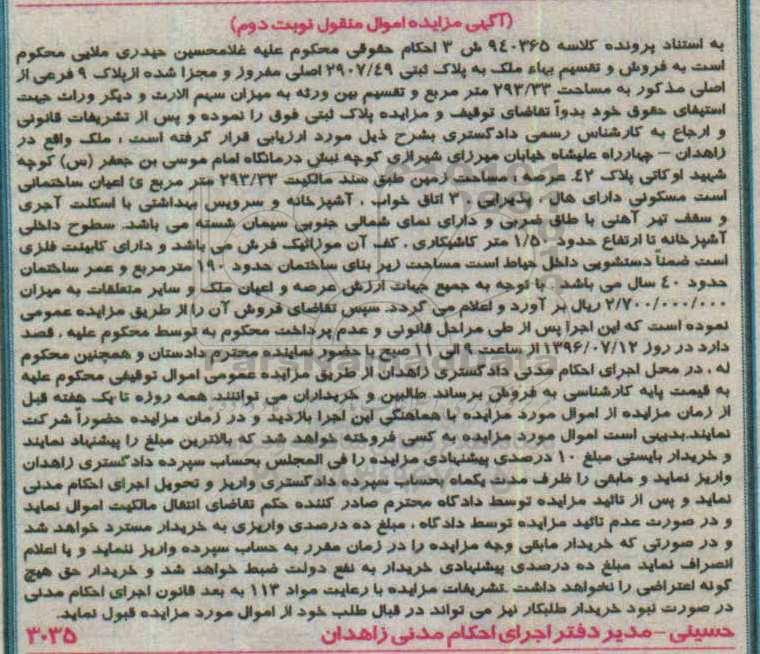 (آگهی مزایده اموال منقول نوبت دوم)
به استناد پرونده کلاسه ۹۴۰۳۶۵ ش ۳ احکام حقوقی محکوم علیه غلامحسین حیدری ملایی محکوم
است به فروش و تقسیم بهاء ملک به پلاک ثبتی ۲۹۰۷/۴۹ اصلی مفروز و مجزا شده ازپلاک ۹ فرعی از
اصلی مذکور به مساحت ۲۹۳/۳۳ متر مربع و تقسیم بین ورثه به میزان سهم الارث و دیگر وراث جهت
استیفای حقوق خود بدواً تقاضای توقیف و مزایده پلاک ثبتی فوق را نموده و پس از تشریفات قانونی
و ارجاع به کارشناس رسمی دادگستری بشرح ذیل مورد ارزیابی قرار گرفته است ، ملک واقع در
زاهدان – چهارراه علیشاه خیابان میرزای شیرازی کوچه نبش درمانگاه امام موسی بن جعفر (س) کوچه
شهید اوکاتی پلاک ۴۲ عرصه ، مساحت زمین طبق سند مالکیت ۲۹۳/۳۳ متر مربع ی اعیان ساختمانی
است مسکونی دارای هال ، پذیرایی ، ۳ اتاق خواب ، آشپزخانه و سرویس بهداشتی با اسکلت آجری
و سقف تیر آهنی با طاق ضربی و دارای نمای شمالی جنوبی سیمان شسته می باشد. سطوح داخلی
آشپزخانه تا ارتفاع حدود ۱/۵۰ متر کاشیکاری ، کف آن موزائیک فرش می باشد و دارای کابینت فلزی
است ضمناً دستشویی داخل حیاط است مساحت زیر بنای ساختمان حدود ۱۹۰ مترمربع و عمر ساختمان
حدود ۴۰ سال می باشد . با توجه به جمیع جهات ارزش عرصه و اعیان ملک و سایر متعلقات به میزان
۲/۷۰۰/۰۰۰/۰۰۰ ریال بر آورد و اعلام می گردد. سپس تقاضای فروش آن را از طریق مزایده عمومی
نموده است که این اجرا پس از طی مراحل قانونی و عدم پرداخت محکوم به توسط محکوم علیه ، قصد
دارد در روز ۱۳۹۶/۰۷/۱۲ از ساعت ۹ الی ۱۱ صبح با حضور نماینده محترم دادستان و همچنین محکوم
له ، در محل اجرای احکام مدنی دادگستری زاهدان از طریق مزایده عمومی اموال توقیفی محکوم علیه
به قیمت پایه کارشناسی به فروش برساند. طالبین و خریداران می توانند همه روزه تا یک هفته قبل
از زمان مزایده از اموال مورد مزایده با هماهنگی این اجرا بازدید و در زمان مزایده حضوراً شرکت
نمایند.بدیهی است اموال مورد مزایده به کسی فروخته خواهد شد که بالاترین مبلغ را پیشنهاد نمایند
و خریدار بایستی مبلغ ۱۰ درصدی پیشنهادی مزایده را فی المجلس بحساب سپرده دادگستری زاهدان
واریز نماید و مابقی را ظرف مدت یکماه بحساب سپرده دادگستری واریز و تحویل اجرای احکام مدنی
نماید و پس از تائید مزایده توسط دادگاه محترم صادر کننده حکم تقاضای انتقال مالکیت اموال نماید
و در صورت عدم تائید مزایده توسط دادگاه ، مبلغ ده درصدی واریزی به خریدار مسترد خواهد شد
و در صورتی که خریدار مابقی وجه مزایده را در زمان مقرر به حساب سپرده واریز ننماید و یا اعلام
انصراف نماید مبلغ ده درصدی پیشنهادی خریدار به نفع دولت ضبط خواهد شد و خریدار حق هیچ
گونه اعتراضی را نخواهد داشت .تشریفات مزایده با رعایت مواد ۱۱۳ به بعد قانون اجرای احکام مدنی
در صورت نبود خریدار طلبکار نیز می تواند در قبال طلب خود از اموال مورد مزایده قبول نماید.
حسینی – مدیر دفتر اجرای احکام مدنی زاهدان
۳۰۳۵